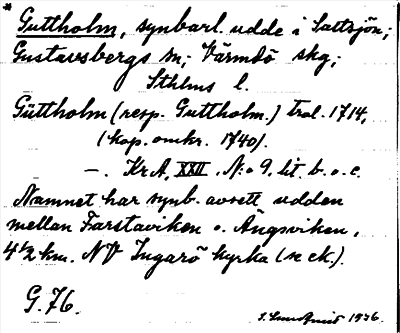 * Guttholm, synbarl. udde i Saltsjön;
Gustavsbergs sn; Värmdö skg;
Sthlms l.
Güttholm (resp. Guttholm.) trol. 1714,
(kop. omkr. 1740).
—. Kr.A. XXII. N:o 9. lit. b. o. c.
Namnet har synb. avsett udden
mellan Farstaviken o. Ängsviken,
4 1/2 km. NV Ingarö kyrka (se ek.).
G. 76.
1936